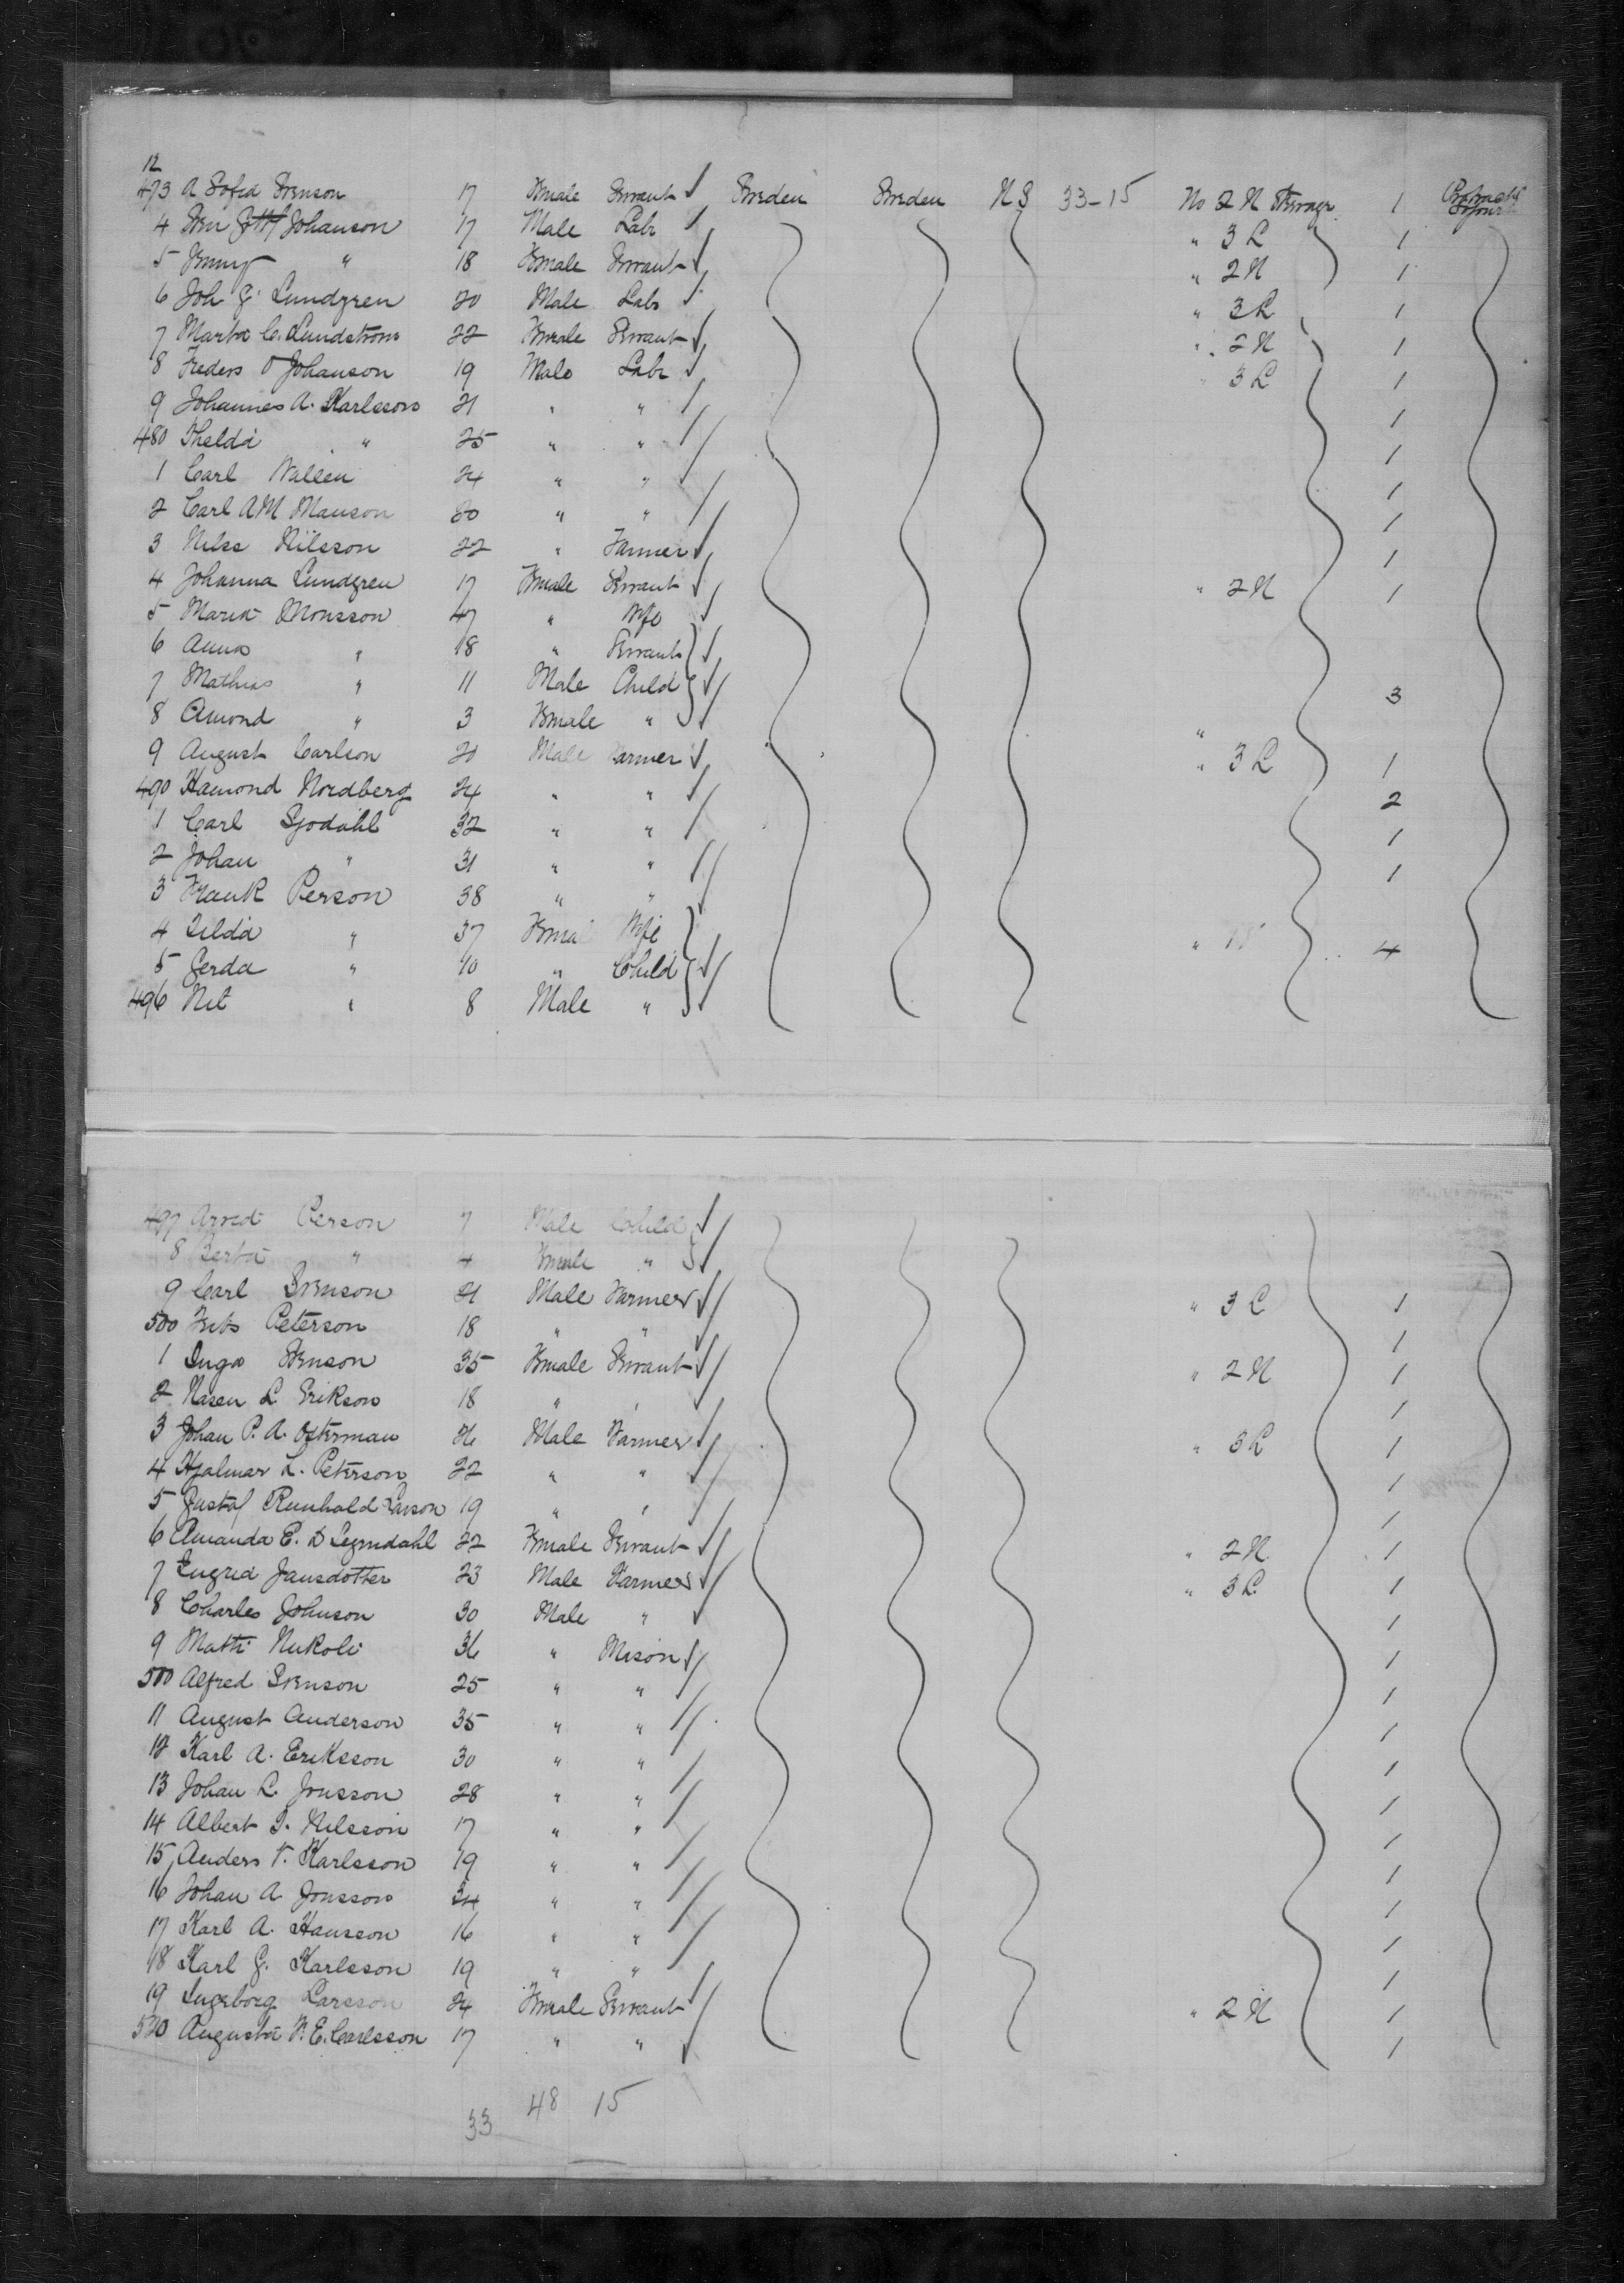 12
473 A Sofia Svenson 17 Female Servant Sweden Sweden N S 33-15 No 2 N Steerage 1 Protracted Sojourn
4 Johanson 17 Male Labr " 3 L 1
5 Jenny " 18 Female Servant " 2 N 1
6 Joh G. Lundgren 20 Male Labr " 3 L 1
7 Marta C. Lundstrom 22 Female Servant " 2 N 1
8 Freders O Johanson 19 Male Labr " 3 L 1
9 Johannes A. Karlsson 21 " " 1
480 Thelda " 25 " " 1
1 Carl Wallen 24 " " 1
2 Carl A M Manson 20 " " 1
3 Niles Nilsson 22 " Farmer 1
4 Johanna Lundgren 17 Female Servant " 2 N 1
5 Maria Monsson 47 " Wife
6 Anna " 18 " Servant
7 Mathias " 11 Male Child 3
8 Amond " 3 Female " "
9 August Carlson 20 Male Farmer " 3 L 1
490 Hamond Nordberg 24 " " 2
1 Carl Sjodahl 32 " " 1
2 Johan " 31 " " 1
3 Frank Person 38 " "
4 Tilda " 37 Femal Wife " 15 4
5 Gerda " 10 " Child
496 Nil " 8 Male "
497 Arved Person 7 Male Child
8 Berta " 4 Female "
9 Carl Svenson 21 Male Farmer " 3 L 1
500 Frits Peterson 18 " " 1
1 Inga Svenson 35 Female Servant " 2 N 1
2 Nasen L. Erikson 18 " " 1
3 Johan P. A. Osterman 26 Male Farmer " 3 L 1
4 Hjalmar L. Peterson 22 " " 1
5 Gustaf Reinhold Larson 19 " " 1
6 Amanda E. D Segundahl 22 Female Servant " 2 N. 1
7 Engred Jansdotter 23 Male Farmer " 3 L. 1
8 Charles Johnson 30 Male " 1
9 Matti Nukoli 36 " Mison 1
500 Alfred Svenson 25 " " 1
11 August Anderson 35 " " 1
12 Karl A. Eriksson 30 " " 1
13 Johan L. Jonsson 28 " " 1
14 Albert I. Nilsson 17 " " 1
15 Anders T. Karlsson 19 " " 1
16 Johan A Jonsson 34 " " 1
17 Karl A. Hansson 16 " " 1
18 Karl G. Karlsson 19 " " 1
19 Ingeborg Larsson 24 Female Servant " 2 N 1
520 Augusta V. E. Carlsson 17 " " 1
33 48 15